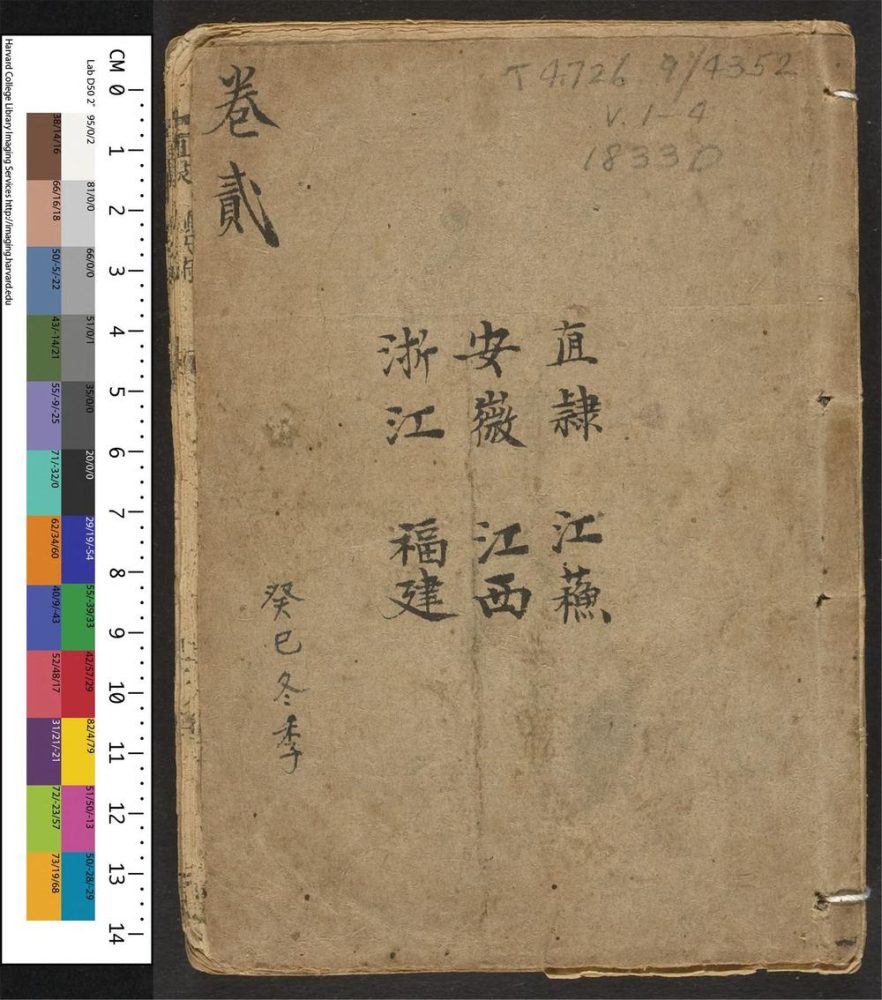 卷貳
T 4726 9/4352
V. 1-4
1833D
直隸 江蘓
安徽 江西
浙江 福建
癸巳冬季
CM 0 1 2 3 4 5 6 7 8 9 10 11 12 13 14
Lab D50 2° 95/0/2 81/0/0 66/0/0 51/0/1 35/0/0 20/0/0 29/19/-54 55/-39/33 42/57/29 82/4/79 51/50/-13 50/-28/-29
38/14/16 66/16/18 50/-5/-22 43/-14/21 55/-9/-25 71/-32/0 62/34/60 40/9/-43 52/48/17 31/21/-21 72/-23/57 73/19/68
Harvard College Library Imaging Services http://imaging.harvard.edu